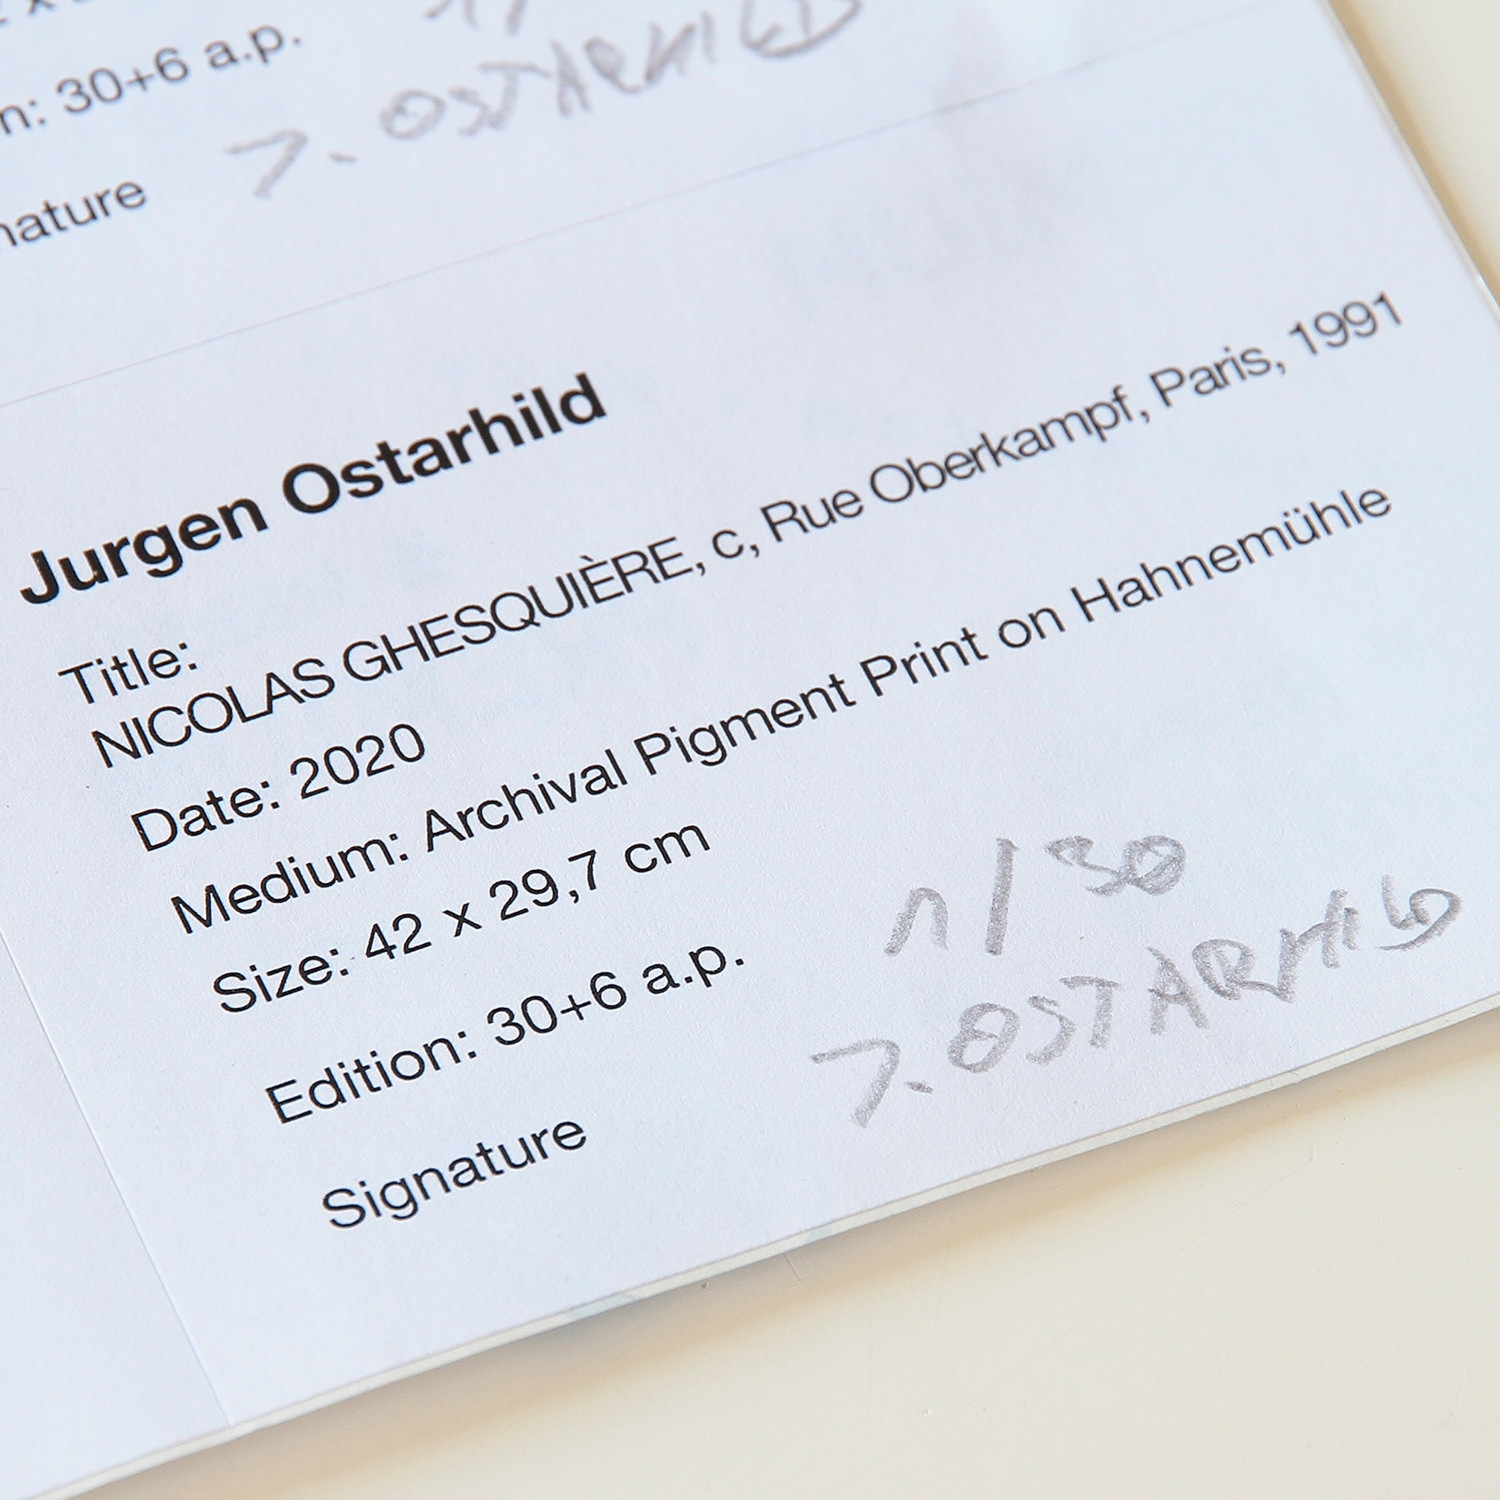 n: 30+6 a.p.
nature
7. OSTARHILD
Jurgen Ostarhild
Title:
NICOLAS GHESQUIÈRE, c, Rue Oberkampf, Paris, 1991
Date: 2020
Medium: Archival Pigment Print on Hahnemühle
Size: 42 x 29,7 cm
Edition: 30+6 a.p.
1/30
Signature
7. OSTARHILD